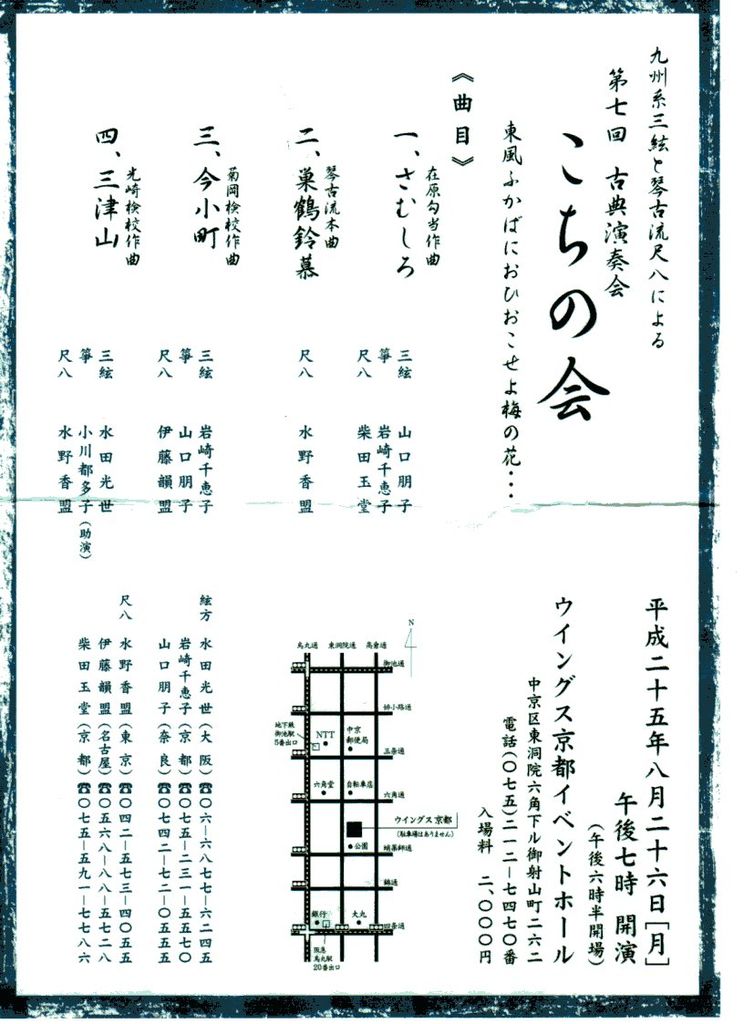 九州系三絃と琴古流尺八による
第七回 古典演奏会
こちの会
東風ふかばにおひおこせよ梅の花・・・
《曲目》
在原勾当作曲
一、さむしろ
三絃 山口朋子
箏 岩崎千恵子
尺八 柴田玉堂
琴古流本曲
二、巣鶴鈴慕
尺八 水野香盟
菊岡検校作曲
三、今小町
三絃 岩崎千恵子
箏 山口朋子
尺八 伊藤韻盟
光崎検校作曲
四、三津山
三絃 水田光世
箏 小川都多子(助演)
尺八 水野香盟
平成二十五年八月二十六日[月]
午後七時 開演
(午後六時半開場)
ウイングス京都イベントホール
中京区東洞院六角下ル御射山町二六二
電話(〇七五)二一二-七四七〇番
入場料 二、〇〇〇円
N
烏丸通 東洞院通 高倉通
御池通
姉小路通
地下鉄
御池駅
5番出口
NTT
中京
郵便局
三条通
六角堂
自転車店
六角通
ウイングス京都
(駐車場はありません)
公園
蛸薬師通
錦通
銀行
大丸
四条通
阪急
烏丸駅
20番出口
絃方 水田光世(大阪)☎〇六-六八七七-六二四五
岩崎千恵子(京都)☎〇七五-二三一-五五七〇
山口朋子(奈良)☎〇七四二-七二-〇五五五
尺八 水野香盟(東京)☎〇四二-五七三-四〇五五
伊藤韻盟(名古屋)☎〇五六八-八八-五七二八
柴田玉堂(京都)☎〇七五-五九一-七七八六